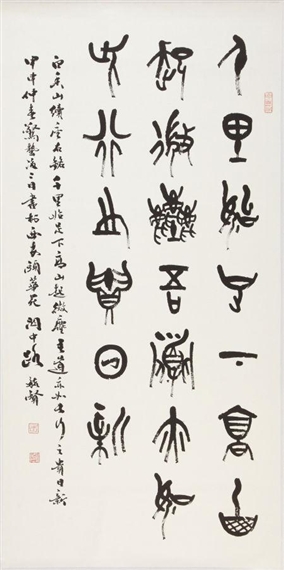 千里始足下高山
起微塵吾道亦如
此行之貴日新
白香山續座右銘千里始足下高山起微塵吾道亦如此行之貴日新
甲申仲春驚蟄後二日書於頤華苑關中路毓賢